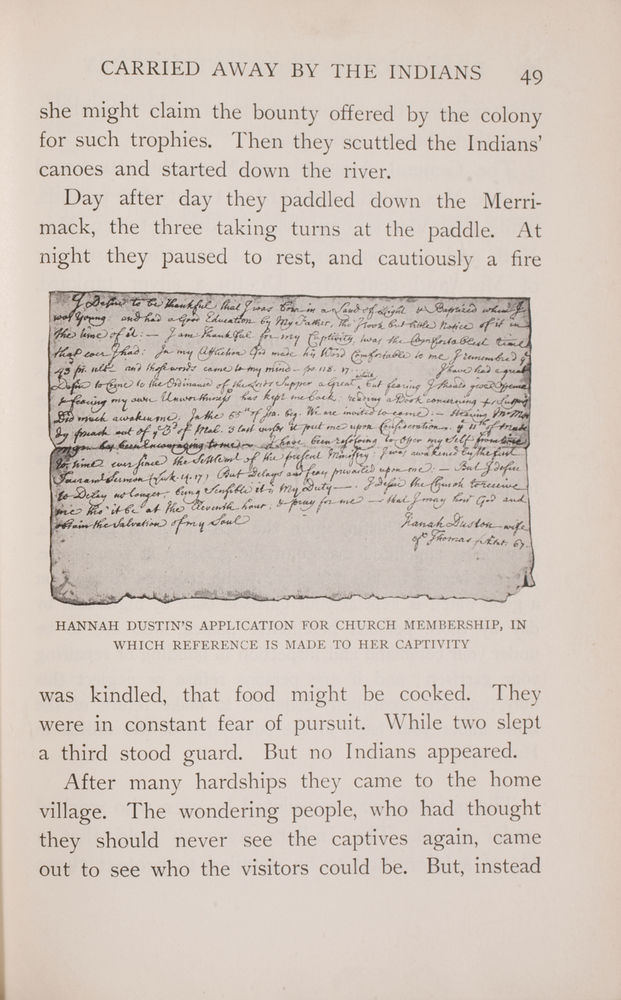 CARRIED AWAY BY THE INDIANS 49
she might claim the bounty offered by the colony
for such trophies. Then they scuttled the Indians'
canoes and started down the river.
Day after day they paddled down the Merri-
mack, the three taking turns at the paddle. At
night they paused to rest, and cautiously a fire
I Desire to be thankful that I was born in a Land of Light & Baptized when I
was young and had a Good Education by My Father, tho' I took but little Notice of it in
the time of it: — I am Thankful for my Captivity, twas the Comfortablest time
that ever I had: In my Affliction God made his Word Comfortable to me. I remembred
43 ps. ult. and those words came to my mind — ps 118. 17. I have had a great
Desire to Come to the Ordinance of the Lords Supper a Great while but fearing I should give offence
& fearing my own Unworthiness has kept me back; reading a Book concerning
Did much awaken me. In the 55th of Isa. beg. We are invited to come: — Hearing Mr Moody
preach out of ye 3d of Mal. 3 last verses it put me upon Consideration. ye 11th of
has been Encouraging to me — I have been resolving to offer my Self from time
to time ever since the Settlement of the present Ministry: I was awakened by the first
Sacram'l Sermon (Luk. 14. 17) But Delays and fears prevailed upon me: — But I desire
to Delay no longer, being Sensible it is My Duty —. I desire the Church to receive
me tho' it be at the Eleventh hour, & pray for me — that I may hon'r God and
obtain the Salvation of my Soul
Hanah Duston wife
of Thomas Ætat. 67.
HANNAH DUSTIN'S APPLICATION FOR CHURCH MEMBERSHIP, IN
WHICH REFERENCE IS MADE TO HER CAPTIVITY
was kindled, that food might be cooked. They
were in constant fear of pursuit. While two slept
a third stood guard. But no Indians appeared.
After many hardships they came to the home
village. The wondering people, who had thought
they should never see the captives again, came
out to see who the visitors could be. But, instead